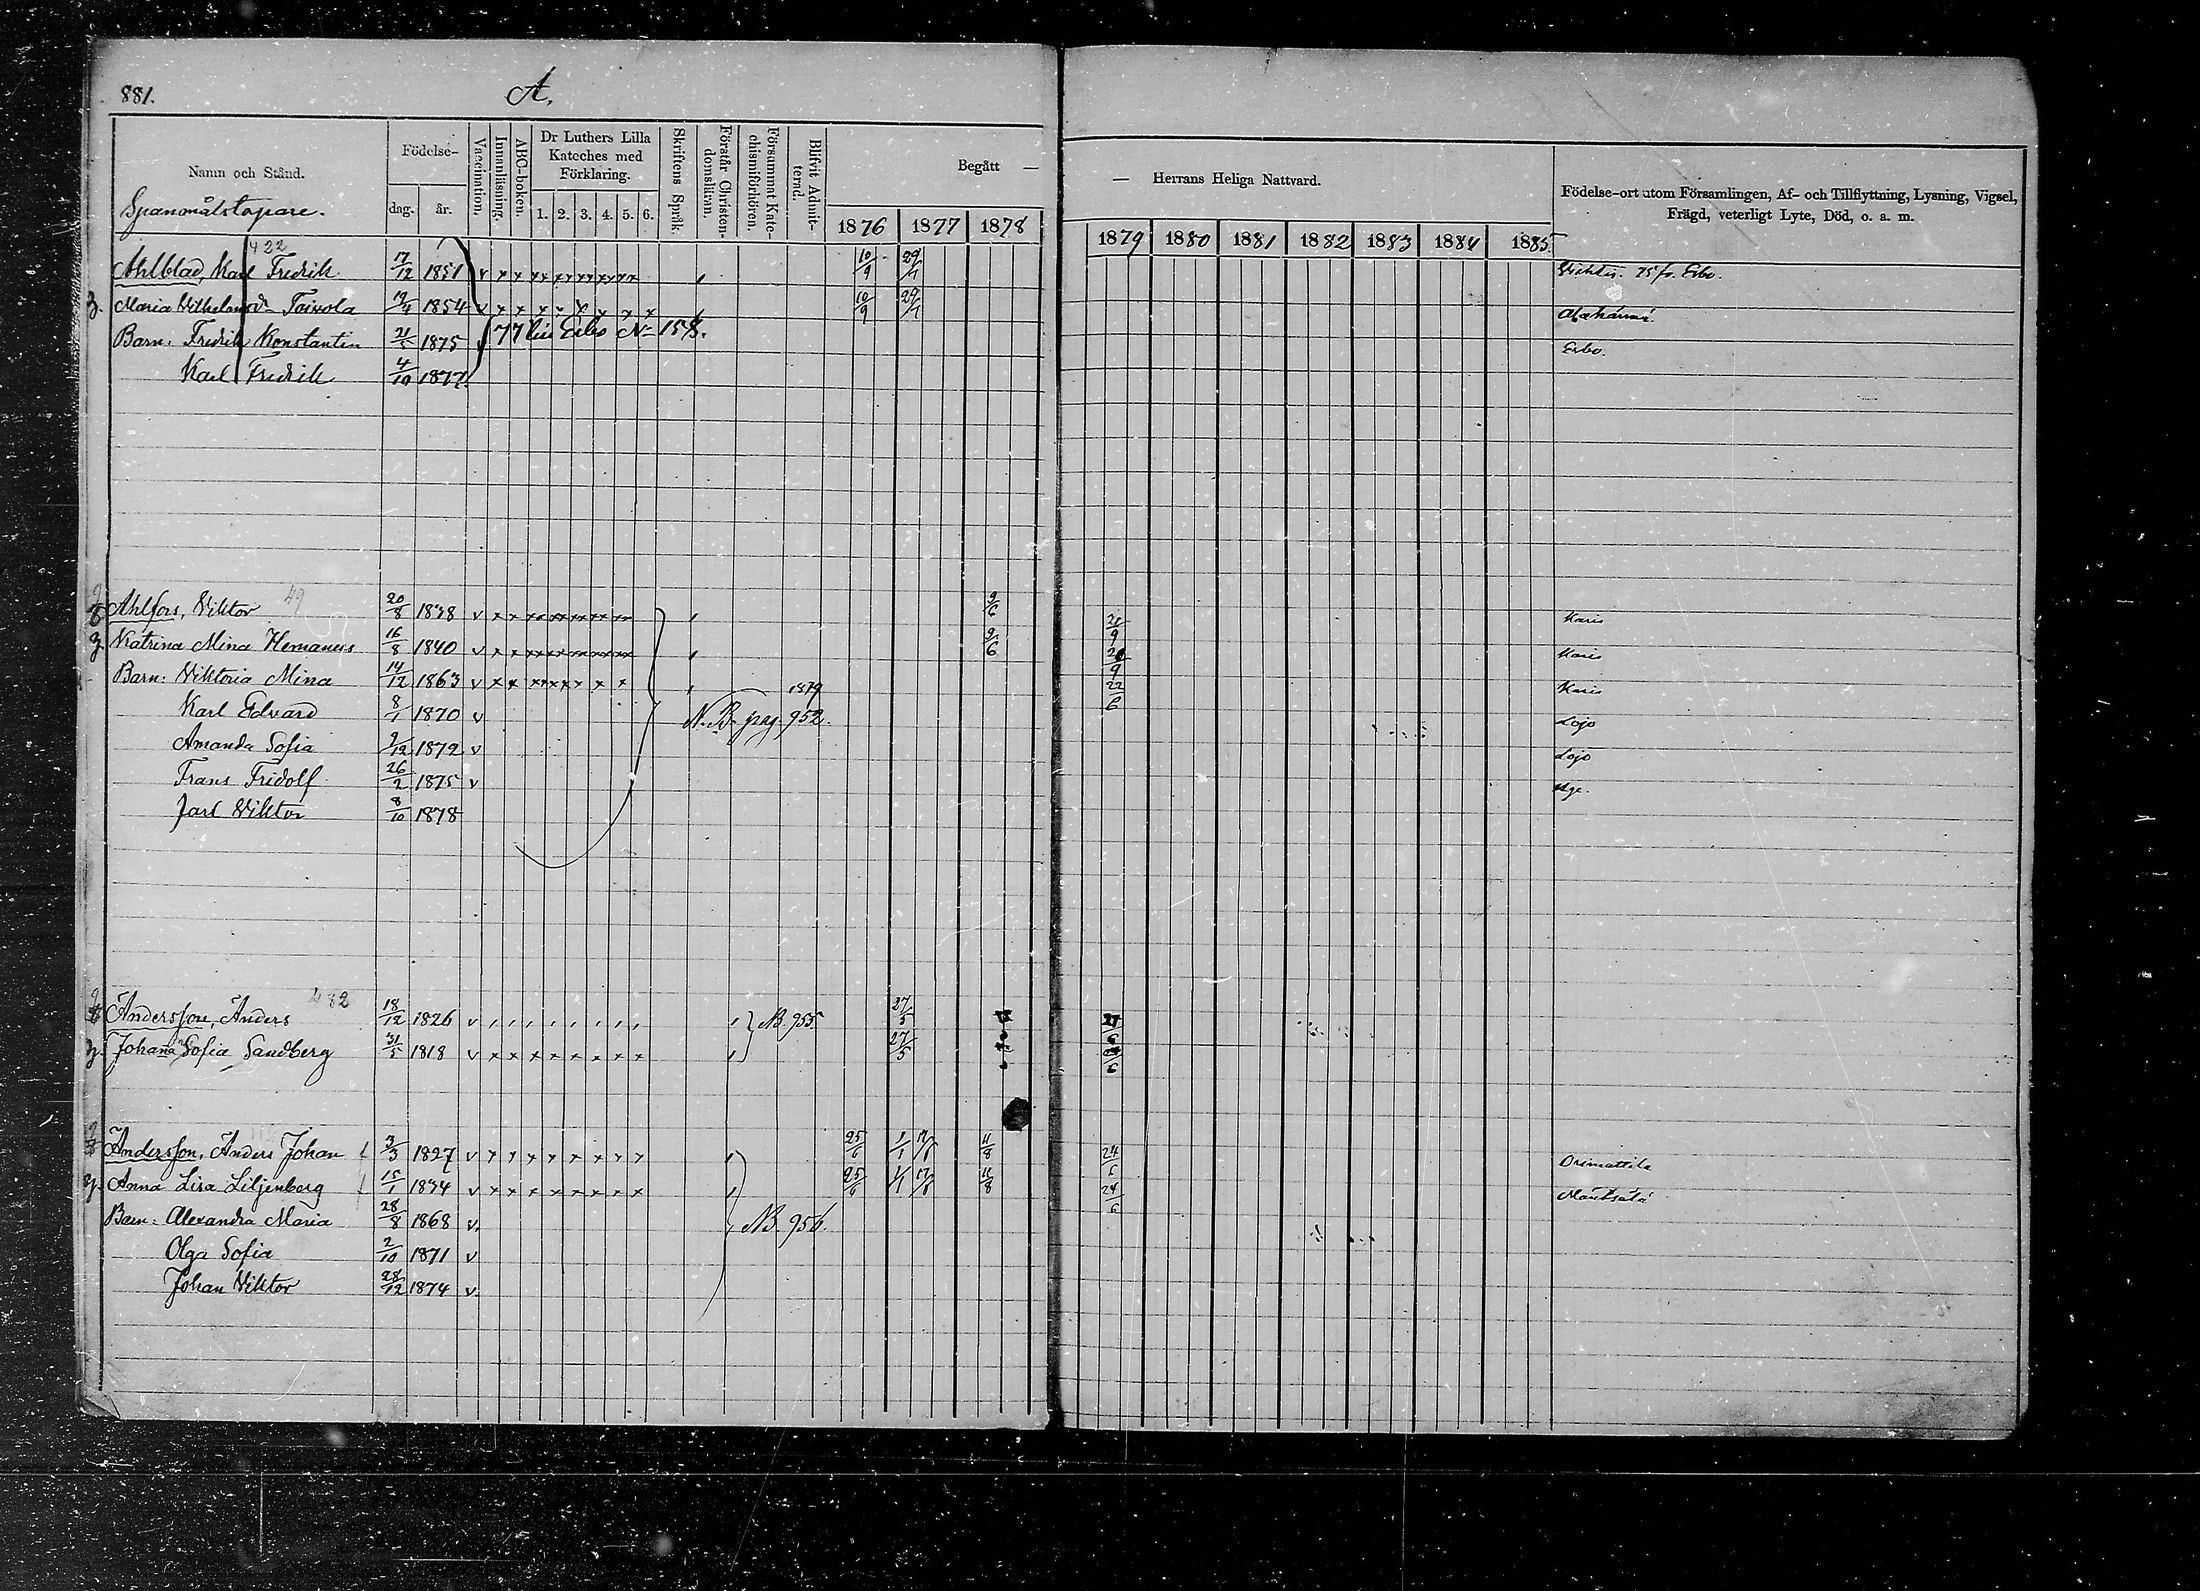 881.
A.
Namn och Stånd.
Födelse-
dag.
år.
Vaccination.
Innanläsning.
ABC-boken.
Dr Luthers Lilla
Kateches med
Förklaring.
1. 2. 3. 4. 5. 6.
Skriftens Språk.
Förstår Christen-
domsläran.
Försummat Kate-
chismiförhören.
Blifvit Admit-
terad.
Begått —
1876 1877 1878
— Herrans Heliga Nattvard.
1879 1880 1881 1882 1883 1884 1885.
Födelse-ort utom Församlingen, Af- och Tillflyttning, Lysning, Vigsel,
Frägd, veterligt Lyte, Död, o. a. m.
432
Ahlblad, Karl Fredrik 17/12 1851 v x x 10/9 29/7 Wichtis. 75 fr. Esbo.
3. Maria Toivola 19/4 1854 v x x x x x x x x 10/9 29/7
Barn: Fredrik Konstantin 21/5 1875 77 till Esbo No 158. Esbo.
Karl Fredrik 4/10 1877.
49
Ahlfors, Viktor 20/8 1838 v 9/6 21/9 Karis
3. Katrina Mina 16/8 1840 v 9/6 21/9 Karis
Barn: Viktoria Mina 14/12 1863 v 1879 22/6 Karis
Karl Edvard 8/1 1870 v N.B. pag. 952. Lojo
Amanda Sofia 9/12 1872 v Lojo
Frans Fridolf 26/2 1875 v
Jarl Viktor 8/10 1878
482
Andersson, Anders 18/12 1826 v NB. 955 27/5 27/6
3. Johanna Sofia Sandberg 31/5 1818 v x x x x x x x x 27/5
Andersson, Anders Johan 3/3 1827 v x x x x x x x x 25/6 1/1 17/6 11/8 24/6 Orimattila
3. Anna Lisa Liljenberg 15/1 1834 v x x x x x x x x 25/6 1/1 17/6 11/8 24/6 Mäntsälä
Barn: Alexandra Maria 28/8 1868 v. NB. 956.
Olga Sofia 2/10 1871 v
Johan Viktor 28/12 1874 v.